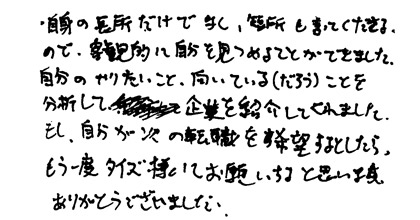 ・自身の長所だけでなく、短所も言ってくださる
ので、客観的に自分を見つめることができました。
自分のやりたいこと、向いている(だろう)ことを
分析して企業を紹介してくれました。
もし、自分が次の転職を希望するとしたら、
もう一度タイズ様にてお願いすると思います
ありがとうございました。